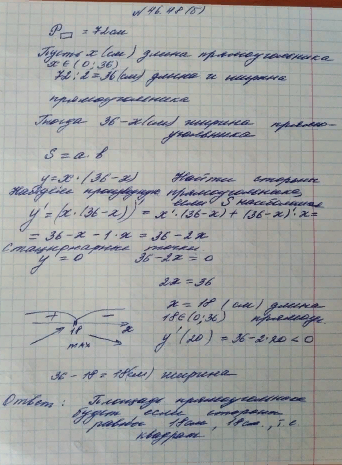 N 46.48(б)
P▭ = 72см
Пусть x (см) длина прямоугольника
x ∈ (0; 36)
72 : 2 = 36 (см) длина и ширина
прямоугольника
Тогда 36 - x (см) ширина прямо-
угольника
S = a · b
y = x · (36 - x) Найти стороны
Найдём производную прямоугольника,
если S наибольшая
y' = (x · (36 - x))' = x' · (36 - x) + (36 - x)' · x =
= 36 - x - 1 · x = 36 - 2x
Стационарные точки
y' = 0 36 - 2x = 0
2x = 36
x = 18 (см) длина
18 ∈ (0; 36) прямоуг.
+ - 18 x
max
y'(20) = 36 - 2 · 20 < 0
36 - 18 = 18 (см) ширина
Ответ: Площадь прямоугольника
будет если стороны
равны 18см, 18см, т.е
квадрат